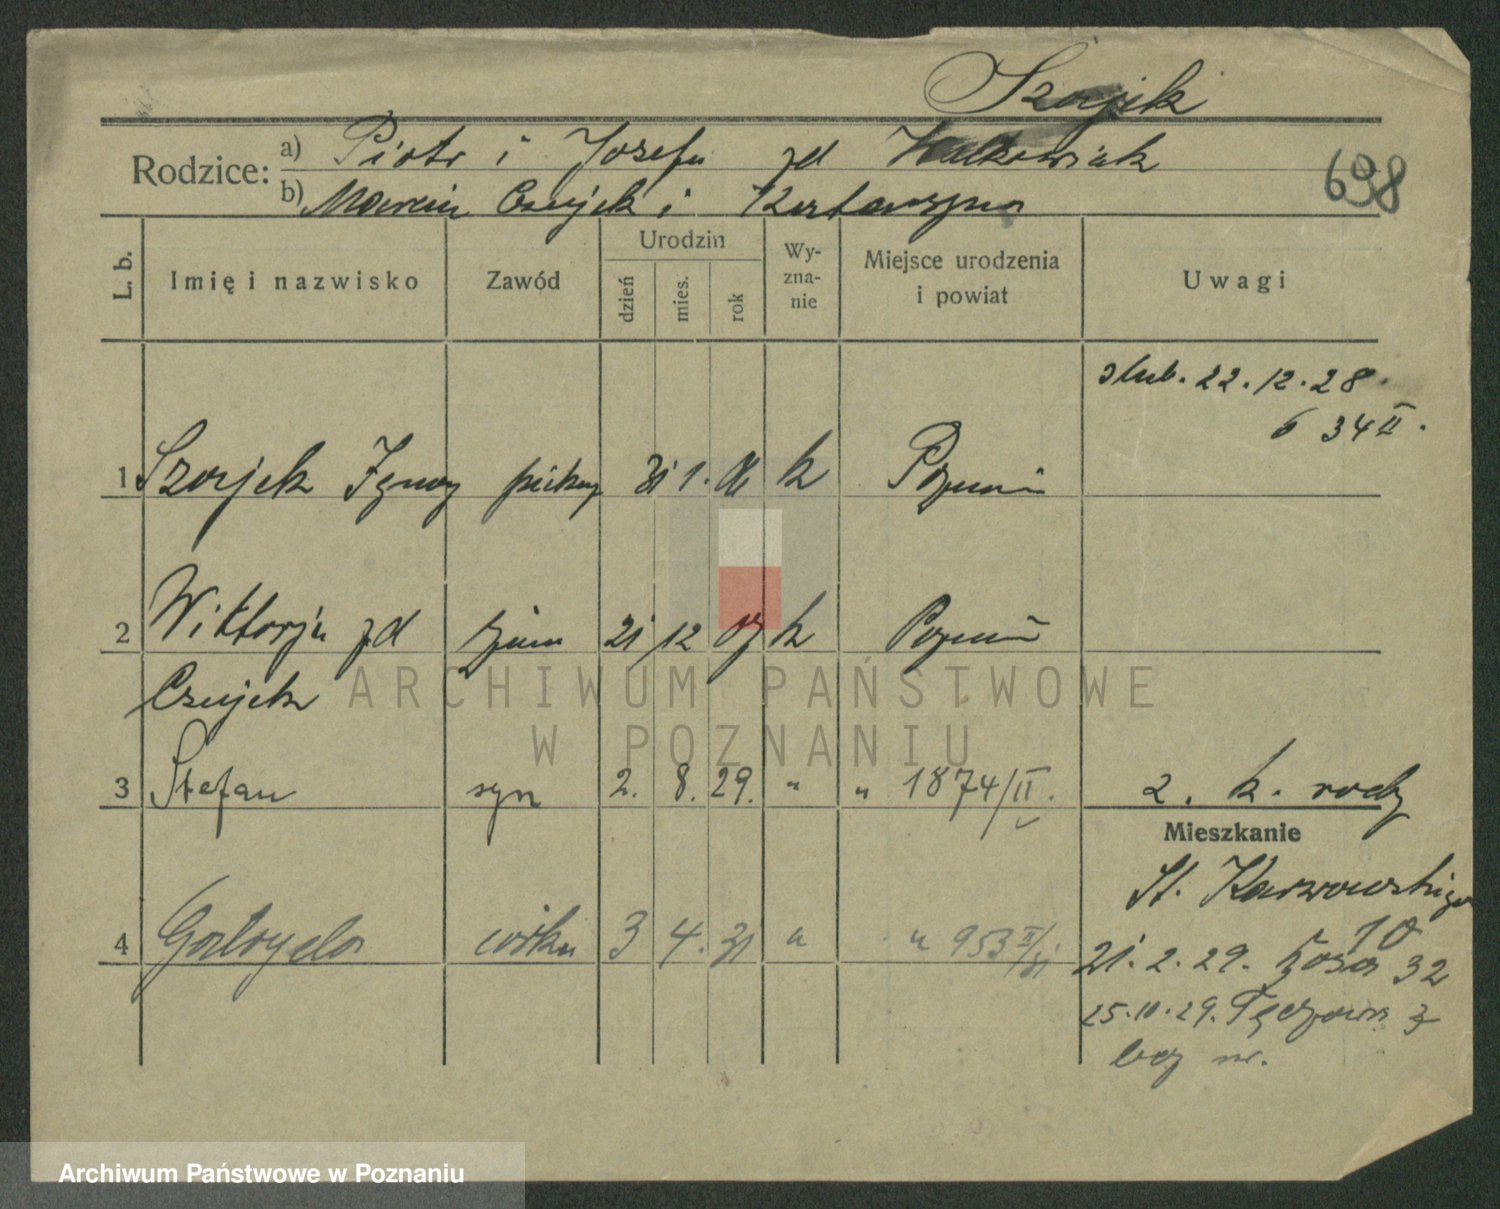 Szejek
Rodzice: a) Piotr i Józefa zd Walkowiak
b) Marcin Czujek i Katarzyna
698
L. b. Imię i nazwisko Zawód Urodzin dzień mies. rok Wyznanie Miejsce urodzenia i powiat Uwagi
ślub. 22.12.28.
6 34 II.
1 Ignacy 31 1. k Poznań
2 Wiktorja zd żona 21 12 07 k Poznań
Czujek
3 Stefan syn 2. 8. 29. " " 1874/II. 2. k. rodz
Mieszkanie
4 córka 3 4. 31 " " 953 II/31
St. Karwowskiego
10
21.2.29. Kosa 32
25.10.29. Tęczowa 3
bez nr.
ARCHIWUM PAŃSTWOWE
W POZNANIU
Archiwum Państwowe w Poznaniu